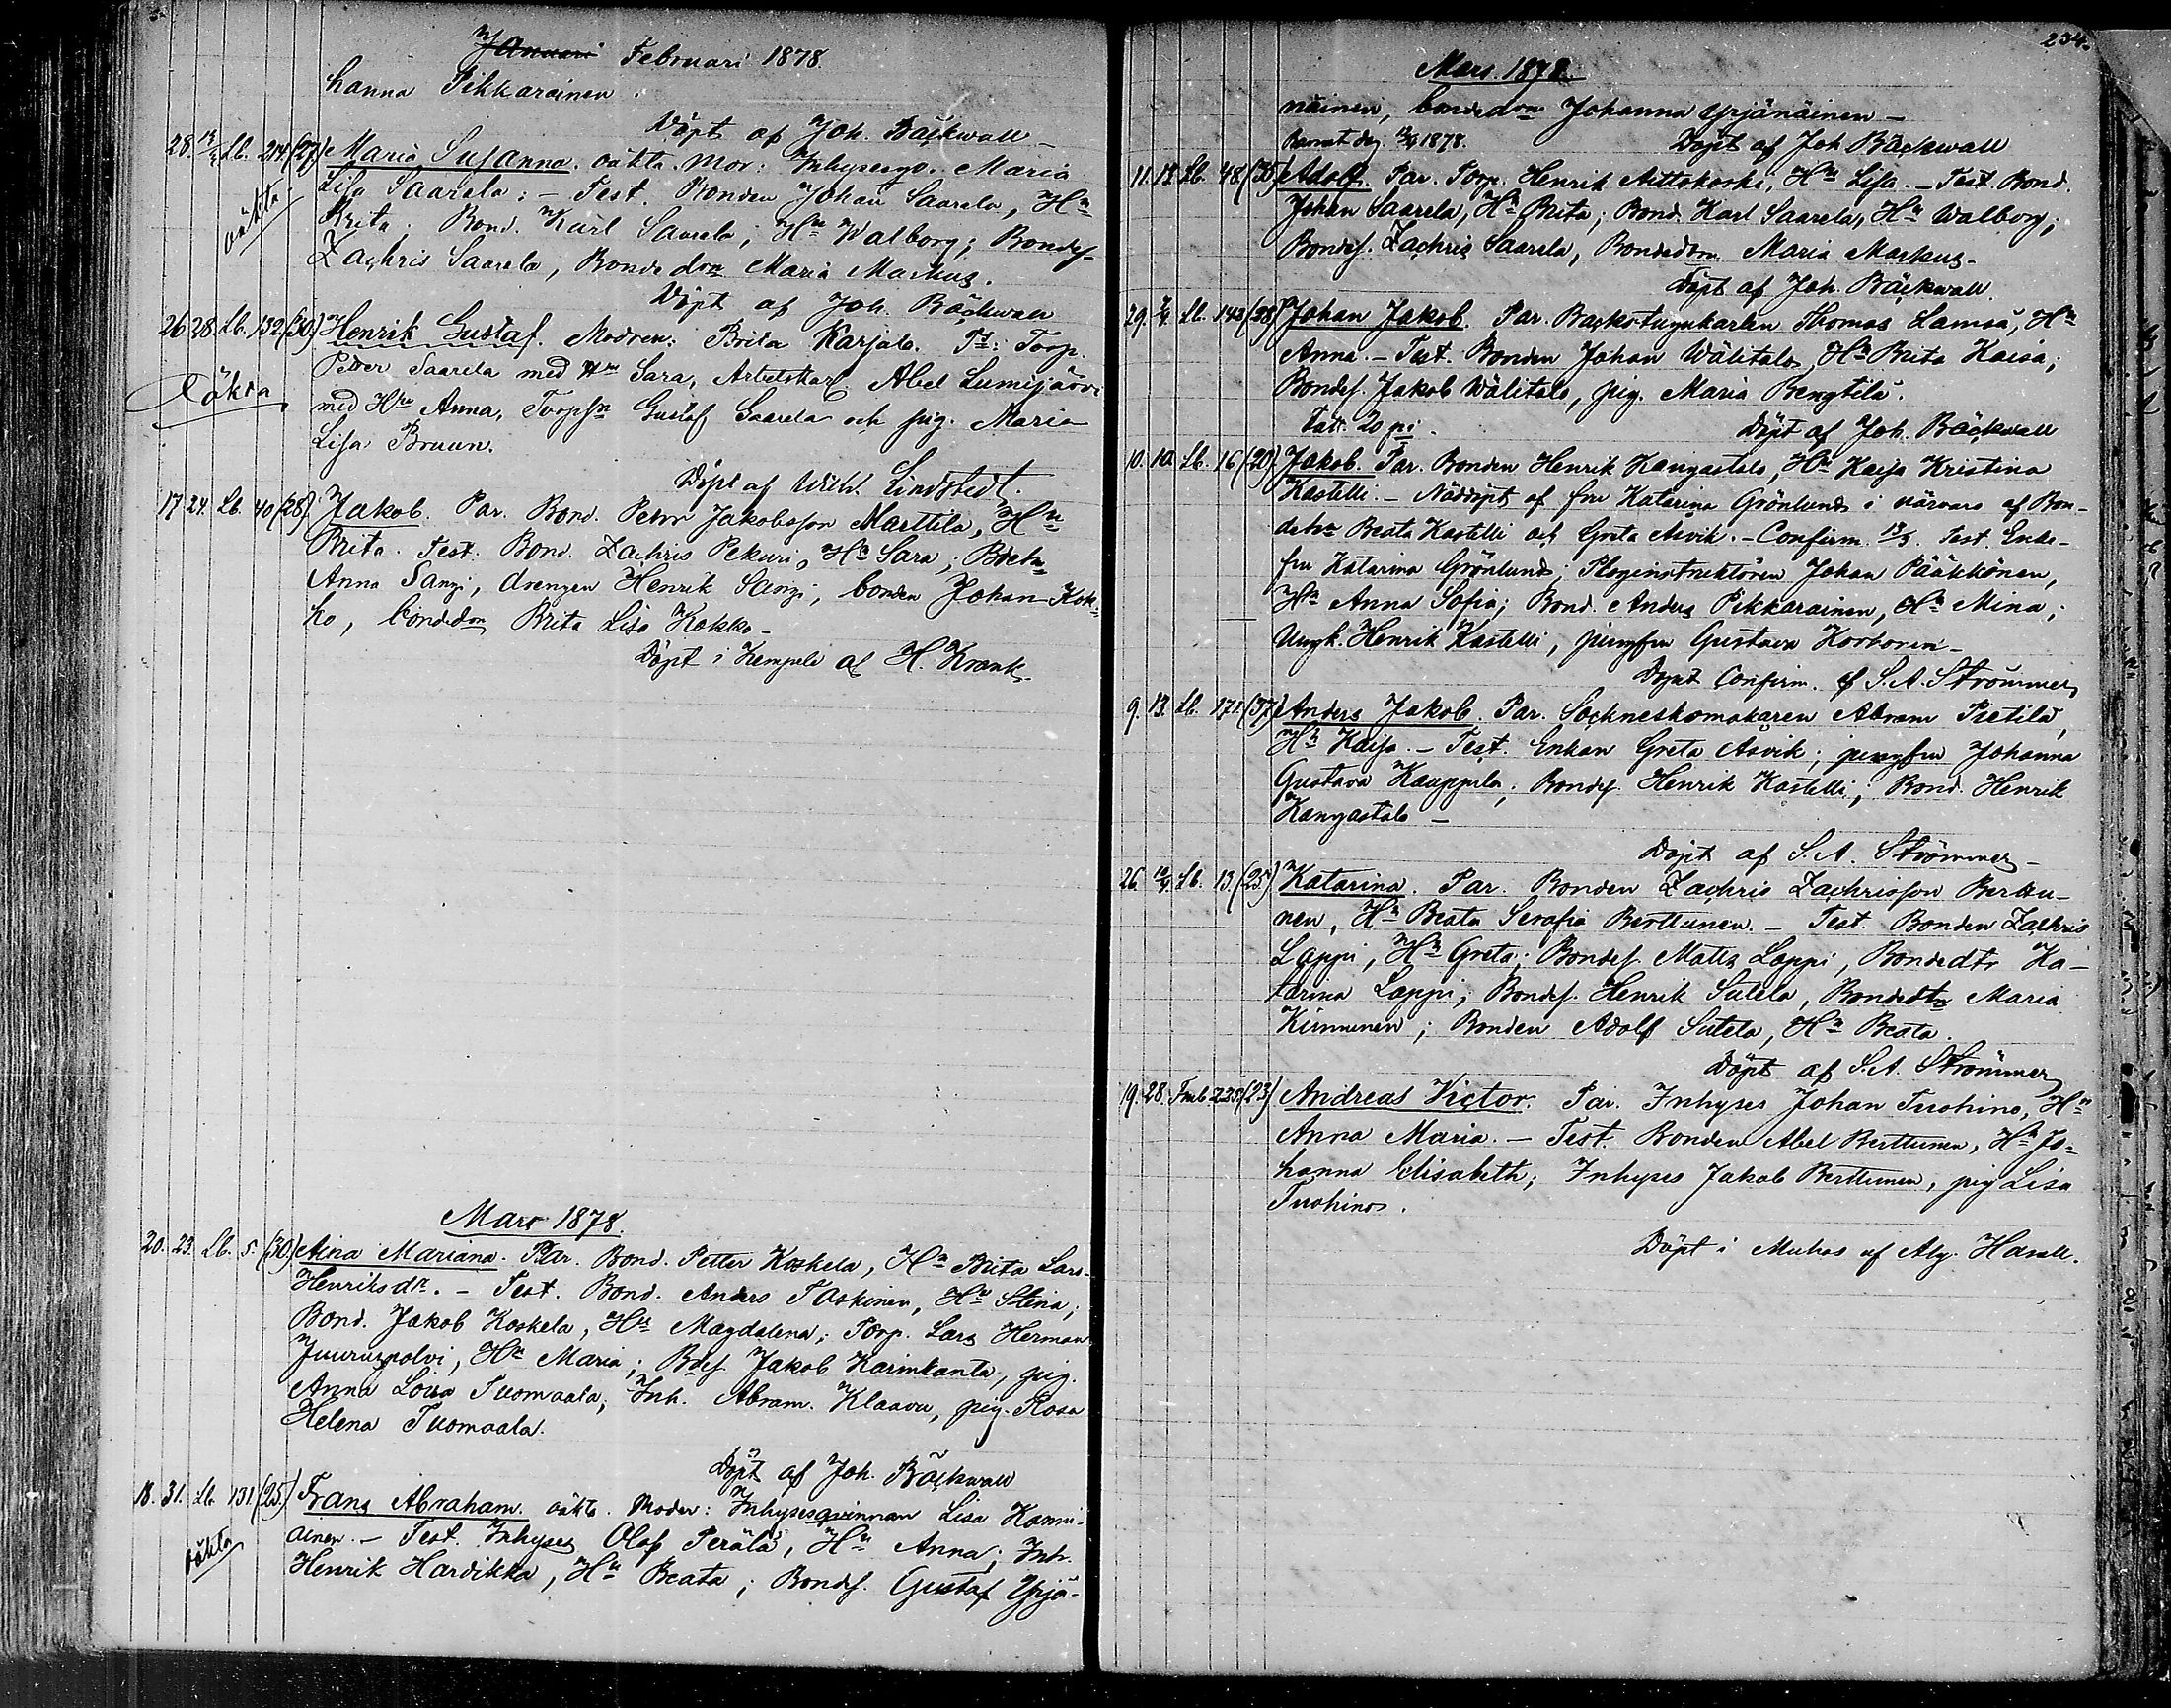 Januari Februari 1878
hanna Pikkarainen.
Döpt af Joh. Bäckwall
28. Lb. 214. (27) Maria Susanna. oäkta. Mor: Inhysesqv. Maria
oäkta
Lisa Saarela; - Test. Bonden Johan Saarela, Hu
Brita; Bond. Karl Saarela; Hu Walborg; Bondes.
Zachris Saarela, Bondedn Maria Markus.
Döpt af Joh. Bäckwall
26 28. Lb. 132 (30.) Henrik Gustaf. Modren: Brita Karjal. Tt: Torp.
Oäkta
Petter Saarela med Hu Sara, Arbetskarl. Abel Lumijärvi
med Hu Anna, Torpsn Gustaf Saarela och pig. Maria
Lisa Bruun.
Döpt af Wilh. Lindstedt.
17 24. Lb. 40 (28). Jakob. Par. Bond. Petter Jakobsson Marttila, Hu
Brita. Test. Bond. Zachris Pekuri, Hu Sara;
Anna Sangi, drengen Henrik Sangi, bonden Johan Kok-
ko, bondedn Brita Lisa Kokko -
Döpt i Kempele af H. Krank.
Mars 1878.
20. 23. Lb. 5. (30.) Aina Mariana. Par. Bond. Petter Koskela, Hu Brita Lars-
Henriksdr. - Test. Bond. Anders Taskinen, Hu Stina;
Bond. Jakob Koskela, Hu Magdalena; Torp. Lars Herman
Juuruspolvi, Hu Maria; Bdes. Jakob Karinkanta, pig.
Anna Lovisa Tuomaala; Inh. Abram. Klaavu, pig. Rosa
Helena Tuomaala.
Döpt af Joh. Bäckwall
18. 31. Lb. 131. (25.) Frans Abraham. oäkta. Moder: Inhysesqvinnan Lisa Kanni-
oäkta
ainen. - Test. Inhyses Olof Perälä, Hu Anna; Inh.
Henrik Hardikka, Hu Beata; Bondes. Gustaf Yrjä-
234.
Mars 1878.
näinen, bondedn Johanna Yrjänäinen -
1878. Döpt af Joh Bäckwall
11. 18. Lb. 48. (35) Adolf. Par. Torp. Henrik Aittokoski, Hu Lisa. - Test. Bond.
Johan Saarela, Hu Brita; Bond. Karl Saarela, Hu Walborg;
Bondes. Zachris Saarela, Bondedn Maria Markus -
Döpt af Joh. Bäckwall.
29. 7/4. Lb. 143 (38) Johan Jakob. Par. Backstugukarlen Thomas Lamsä, Hu
Anna. - Test. Bonden Johan Wälitalo, Hu Brita Kaisa;
Bondes. Jakob Wälitalo, pig. Maria Bengtilä.
Fatt. 20 pi. Döpt af Joh. Bäckwall
10. 10. Lb. 16 (29). Jakob. Par. Bonden Henrik Kangastalo, Hu Kaisa Kristina
Kastelli. - Nöddöpt af fru Katarina Grönlund i närvaro af Bon-
Beata Kastelli och Greta Asvik. - Confirm. 13/3. Test. Enke-
fru Katarina Grönlund; Ploginstruktören Johan Pääkkönen,
Hu Anna Sofia; Bond. Anders Pikkarainen, Hu Mina;
Ungk. Henrik Kastelli, jungfru Gustava Korhonen -
Döpt Confirm. af S. A. Strömmer
9. 13. Lb. 171. (37) Anders Jakob. Par. Sockneskomakaren Abram Pietilä,
Hu Kaisa. - Test. Enkan Greta Asvik; jungfru Johanna
Gustava Kauppila; Bondes. Henrik Kastelli; Bond. Henrik
Kangastalo -
Döpt af S. A. Strömmer -
26. 10/4. Lb. 13. (25). Katarina. Par. Bonden Zachris Zachrisson Berttu-
nen, Hu Beata Serafia Berttunen. - Test. Bonden Zachris
Lappi, Hu Greta; Bondes. Matts Lappi, Bondedtr Ka-
tarina Lappi; Bondes. Henrik Sutela, Bondedtr Maria
Kinnunen; Bonden Adolf Sutela, Hu Beata.
Döpt af S. A. Strömmer
19. 28. 235. (23) Andreas Victor. Par. Inhyses Johan Tuohino, Hu
Anna Maria. - Test. Bonden Abel Berttunen, Hu Jo-
hanna Elisabeth; Inhyses Jakob Berttunen, pig Lisa
Tuohino.
Döpt i Muhos af